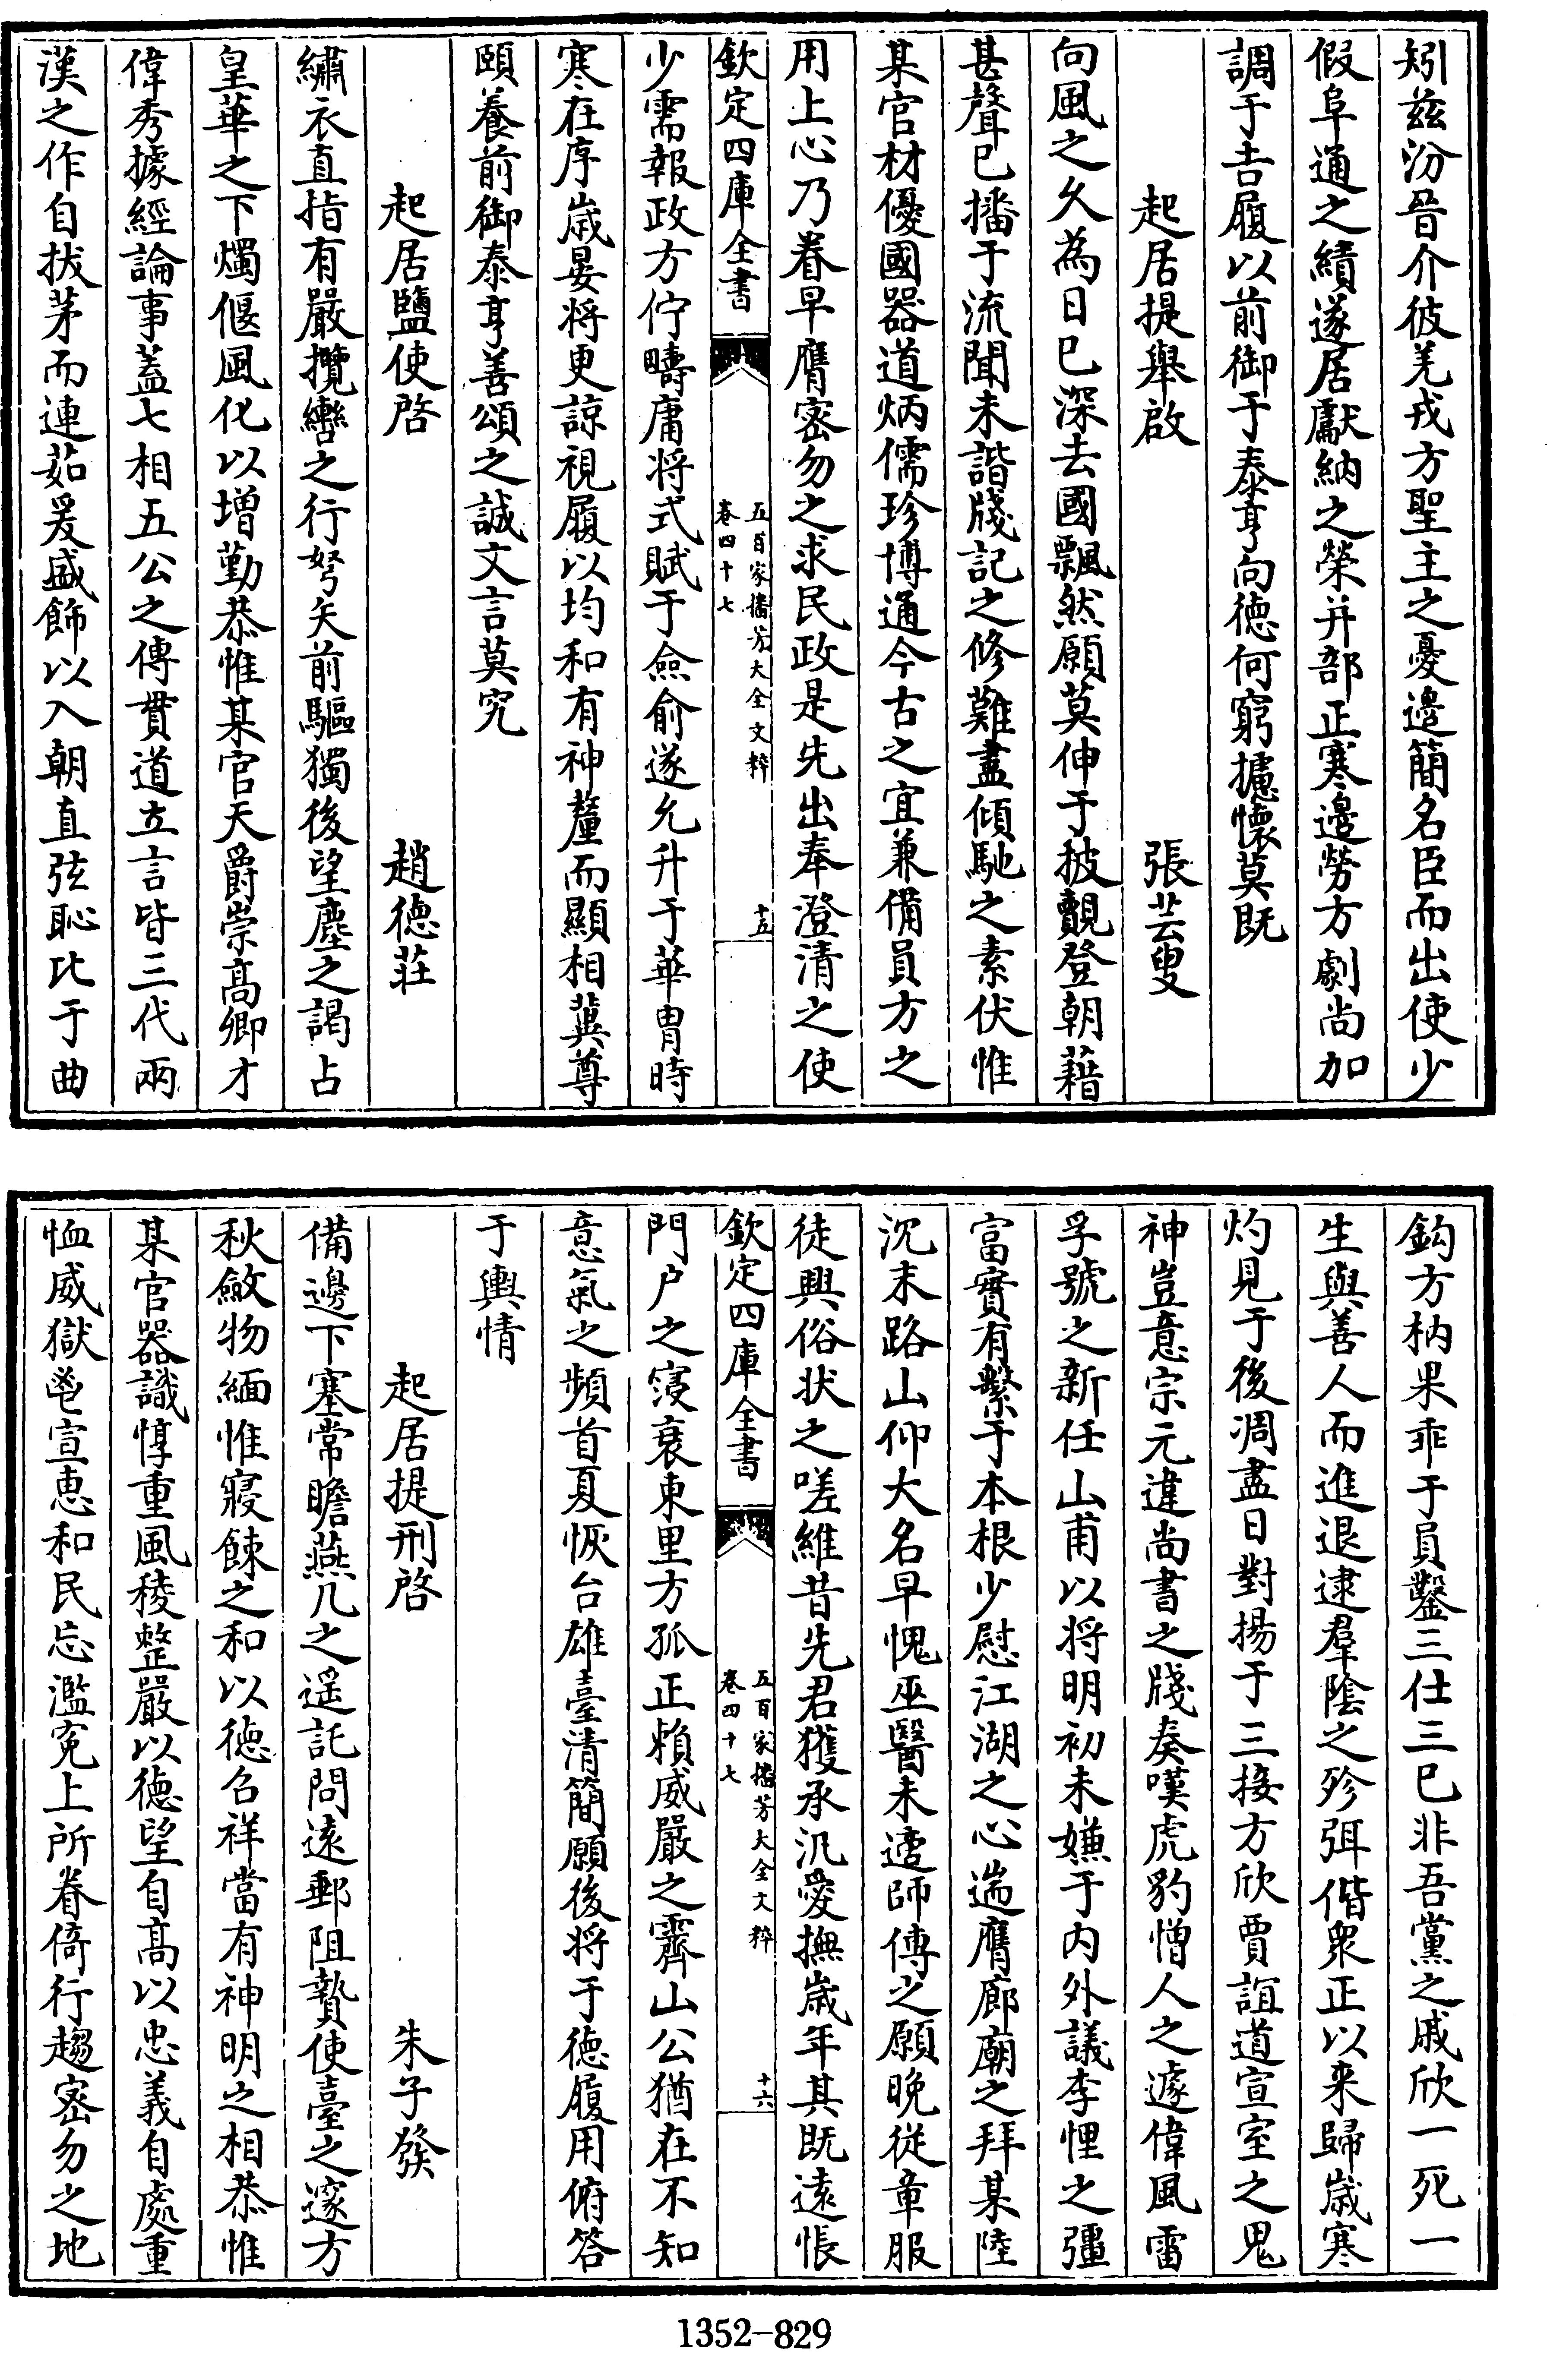 矧兹汾晉介彼羌戎方聖主之憂邊簡名臣而出使少
假阜通之績遂居獻納之榮并部正寒邊勞方劇尚加
調于吉履以前御于泰亨向徳何窮攄懷莫既
起居提舉啟 張芸叟
向風之久為日已深去國飄然願莫伸于披覿登朝藉
甚聲已播于流聞未諧牋記之修難盡傾馳之素伏惟
某官材優國器道炳儒珍博通今古之宜兼備員方之
用上心乃眷早膺密勿之求民政是先出奉澄清之使
欽定四庫全書 五百家播芳大全文粹 卷四十七 十五
少需報政方佇疇庸将式賦于僉俞遂允升于華胄時
寒在序嵗晏将更諒視履以均和有神釐而顯相冀尊
頤養前御泰亨善頌之誠文言莫究
起居鹽使啓 趙徳莊
繡衣直指有嚴攬轡之行弩矢前驅獨後望塵之謁占
皇華之下燭偃風化以增勤恭惟某官天爵崇髙卿才
偉秀據經論事蓋七相五公之傳貫道立言皆三代兩
漢之作自拔茅而連茹爰盛飾以入朝直弦恥比于曲
鈎方枘果乖于員鑿三仕三已非吾黨之戚欣一死一
生與善人而進退逮羣陰之殄弭偕衆正以来歸嵗寒
灼見于後凋盡日對揚于三接方欣賈誼道宣室之鬼
神豈意宗元違尚書之牋奏嘆虎豹憎人之遽偉風雷
孚號之新任山甫以将明初未嫌于内外議李悝之彊
富實有繫于本根少慰江湖之心遄膺廊廟之拜某陸
沉末路山仰大名早愧巫醫未遑師傅之願晚從章服
徒興俗状之嗟維昔先君獲承汎愛撫嵗年其既逺悵
欽定四庫全書 五百家播芳大全文粹 卷四十七 十六
門户之寖衰東里方孤正頼威嚴之霽山公猶在不知
意氣之頻首夏恢台雄臺清簡願後将于徳履用俯答
于輿情
起居提刑啓 朱子發
備邊下塞常瞻燕几之遥託問逺郵阻贄使臺之邃方
秋斂物緬惟寢餗之和以徳召祥當有神明之相恭惟
某官器識惇重風稜整嚴以徳望自髙以忠義自處重
恤威獄鬯宣恵和民忘濫冤上所眷倚行趨密勿之地
1352-829